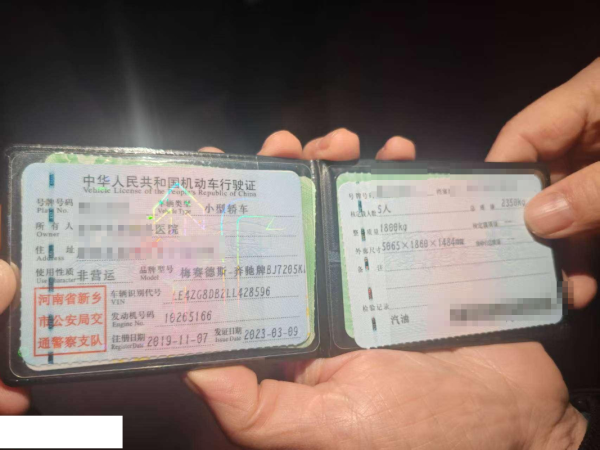 中华人民共和国机动车行驶证
Vehicle License of the People's Republic of China
号牌号码
Plate No.
车辆类型
小型轿车
所有人
Owner
医院
住址
Address
使用性质
非营运
品牌型号
梅赛德斯-奔驰牌BJ7205
河南省新乡
市公安局交
通警察支队
车辆识别代号
VIN
LE4ZG8DB2LL428596
发动机号码
Engine No.
10265166
注册日期
Register Date
2019-11-07
发证日期
Issue Date
2023-03-09
5人
2350kg
1800kg
外廓尺寸
5065×1860×1484
备注
检验记录
汽油